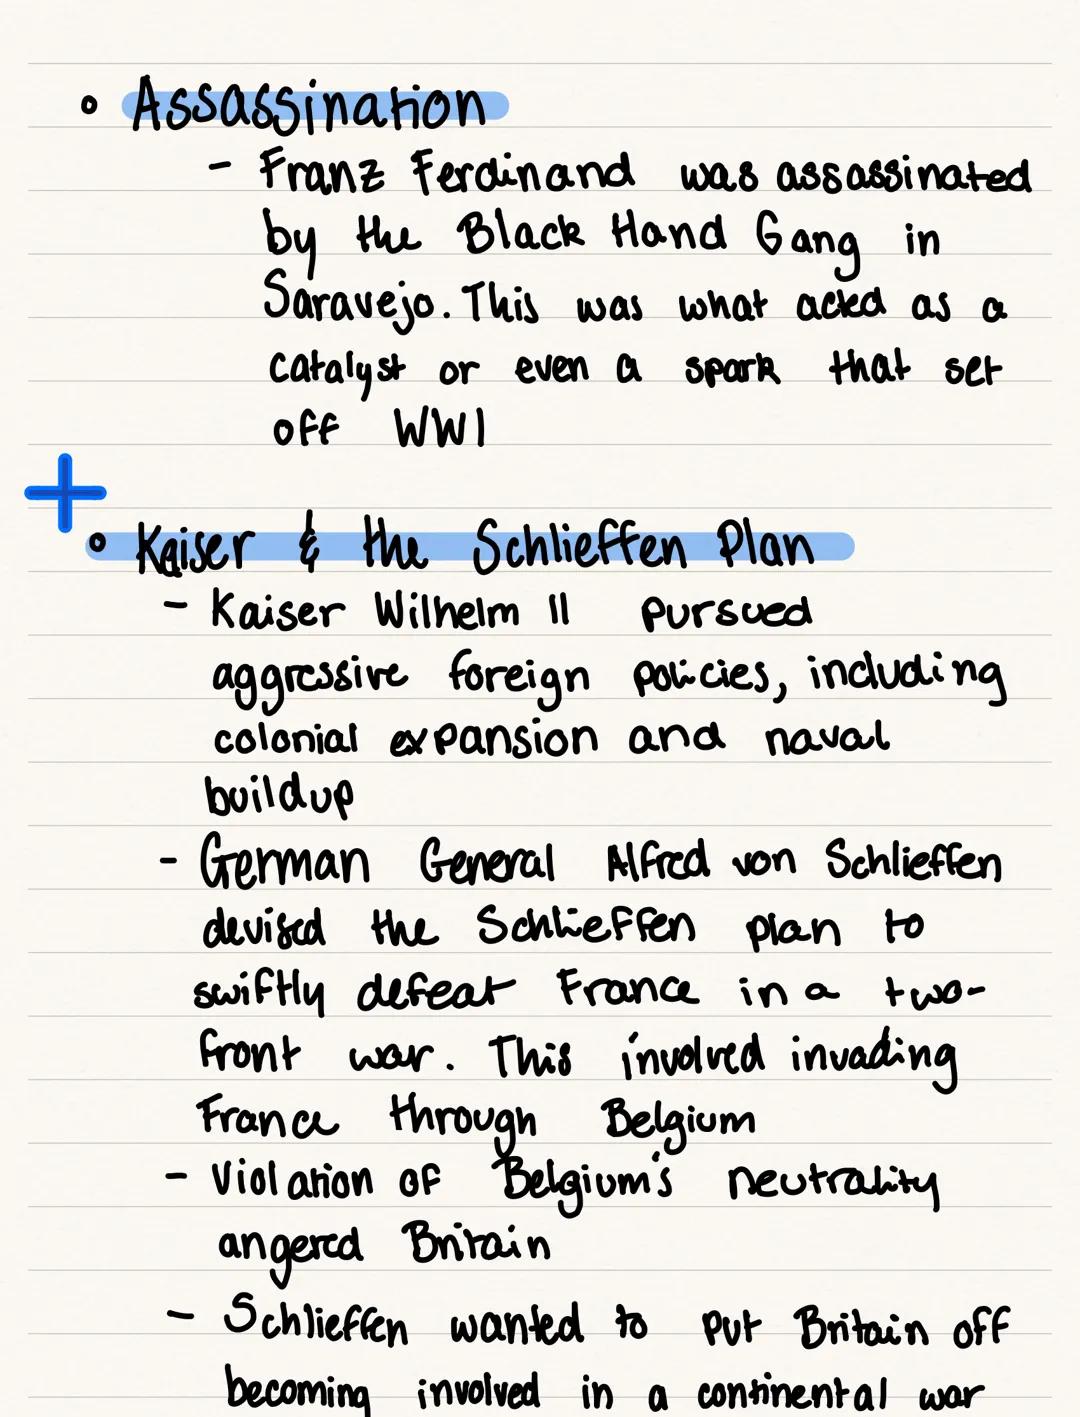 Assassination
- Franz Ferdinand was assassinated
by the Black Hand Gang in
Saravejo. This was what acted as a
catalyst or even a spark that set
off WWI
Kaiser & the Schlieffen Plan
- Kaiser Wilhelm II pursued
aggressive foreign policies, including
colonial expansion and naval
buildup
- German General Alfred von Schlieffen
devised the Schlieffen plan to
swiftly defeat France in a two-
front war. This involved invading
France through Belgium
- Violation of Belgium's neutrality
angered Britain
- Schlieffen wanted to put Britain off
becoming involved in a continental war